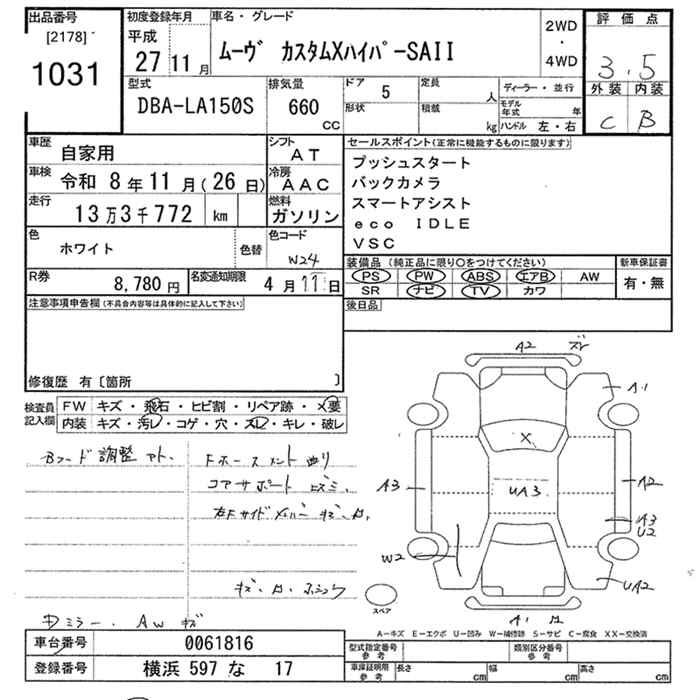 出品番号
[2178]
1031
初度登録年月
平成
27 11 月
車名・グレード
ムーヴ カスタムXハイパーSAII
2WD
・
4WD
評価点
3.5
外装 内装
C B
型式
DBA-LA150S
排気量
660
CC
ドア 5
形状
定員 人
積載 kg
ディーラー・並行
モデル年式 年
ハンドル 左・右
車歴
自家用
シフト
AT
車検
令和 8年 11月(26日)
冷房
AAC
走行
13万3千772 km
燃料
ガソリン
色
ホワイト
色替
色コード
W24
R券
8,780 円
名変通知期限
4月11日
セールスポイント(正常に機能するものに限ります)
プッシュスタート
バックカメラ
スマートアシスト
eco IDLE
VSC
装備品 (純正品に限り○をつけてください)
PS PW ABS エアB AW
SR ナビ TV カワ
新車保証書
有・無
後日品
注意事項申告欄(不具合内容等は具体的に記入して下さい)
修復歴 有〔箇所 〕
検査員記入欄
FW キズ・飛石・ヒビ割・リペア跡・×要
内装 キズ・汚レ・コゲ・穴・スレ・キレ・破レ
Bフード調整アト.
コアサポート
キズ・
ミラー. AW キズ
A2 ズレ
A1
X
A3
UA3
A2
A3
U2
W2
UA2
A1
スペア
A−キズ E−エクボ U−凹み W−補修跡 S−サビ C−腐食 XX−交換済
車台番号
0061816
登録番号
横浜 597 な 17
型式指定番号
参考
類別区分番号
参考
車庫証明用
参考
長さ cm 幅 cm 高さ cm